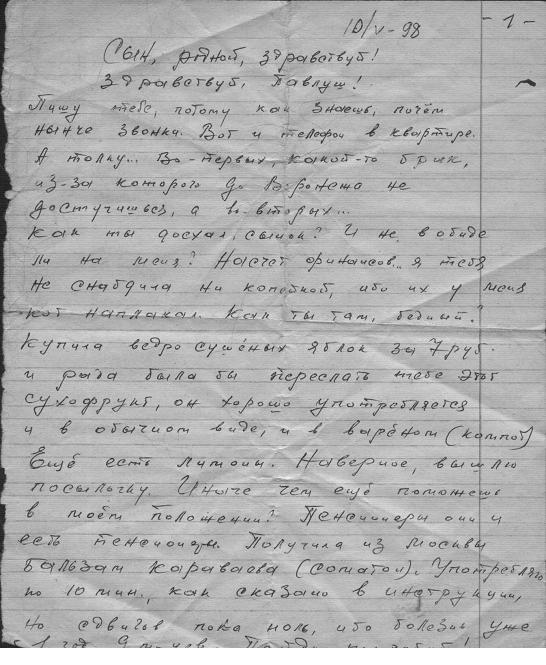 10/V-98
- 1 -
Сын, родной, здравствуй!
Здравствуй, Павлуш!
Пишу тебе, потому как знаешь, почём
нынче звонки. Вот и телефон в квартире.
А толку... Во-первых, какой-то брик,
из-за которого до Воронежа не
достучишься, а во-вторых...
Как ты доехал, сынок? И не в обиде
ли на меня? Насчёт финансов.. я тебя
не снабдила ни копейкой, ибо их у меня
кот наплакал. Как ты там, бедный?
Купила ведро сушёных яблок за 7 руб.
и рада была бы переслать тебе этот
сухофрукт, он хорошо употребляется
и в обычном виде, и в варёном (компот)
Ещё есть лимоны. Наверное, вышлю
посылочку. Иначе чем ещё поможешь
в моём положении? Пенсионеры они и
есть пенсионеры. Получила из Москвы
бальзам Караваева (соматон). Употребляю
по 10 мин., как сказано в инструкции,
но сдвигов пока ноль, ибо болезнь уже